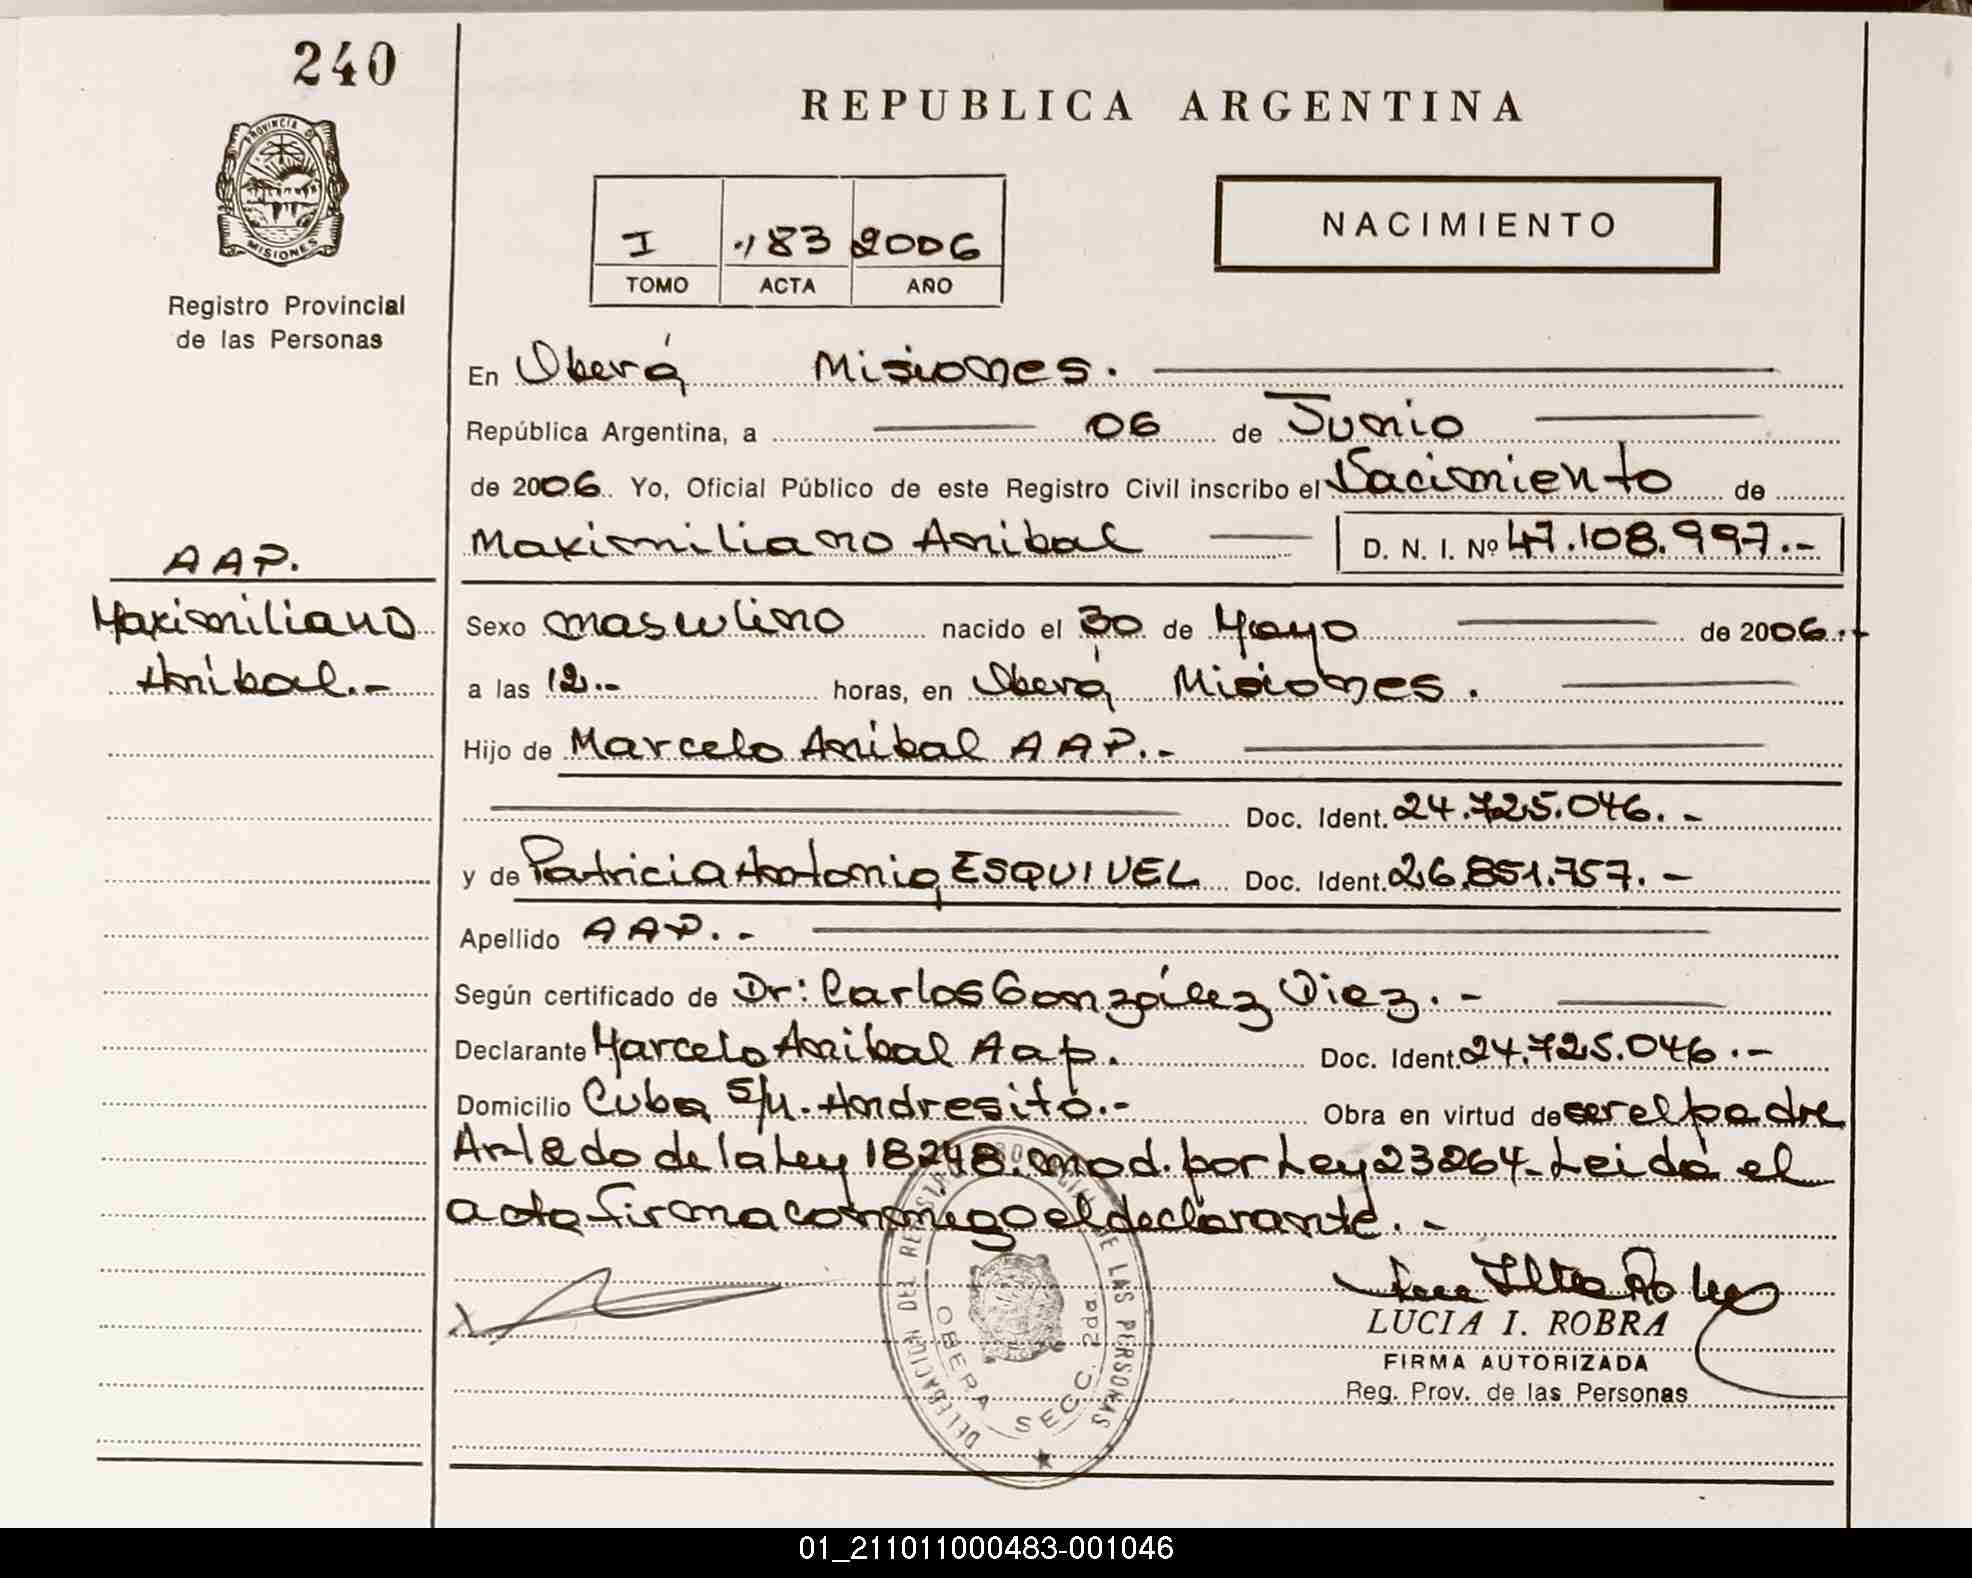 240
PROVINCIA DE
MISIONES
Registro Provincial
de las Personas
REPUBLICA ARGENTINA
I 183 2006
TOMO ACTA AÑO
NACIMIENTO
En Oberá Misiones.
República Argentina, a 06 de Junio
de 2006. Yo, Oficial Público de este Registro Civil inscribo el Nacimiento de
Maximiliano Anibal D. N. I. Nº 47.108.997.-
AAP.
Maximiliano
Anibal.-
Sexo masculino nacido el 30 de Mayo de 2006.-
a las 12.- horas, en Oberá Misiones.
Hijo de Marcelo Anibal AAP.-
Doc. Ident. 24.725.046.-
y de Patricia Antonia ESQUIVEL Doc. Ident. 26.851.757.-
Apellido AAP.-
Según certificado de Dr: Carlos González Diez.-
Declarante Marcelo Anibal Aap. Doc. Ident. 24.725.046.-
Domicilio Cuba S/N. Andresito.- Obra en virtud de ser el padre
Art 2do de la Ley 18248. mod. por Ley 23264- Leida el
acta firma conmigo el declarante.-
DELEGACION DEL REGISTRO PROVINCIAL DE LAS PERSONAS
OBERA SECC. 2da
LUCIA I. ROBRA
FIRMA AUTORIZADA
Reg. Prov. de las Personas
01_211011000483-001046